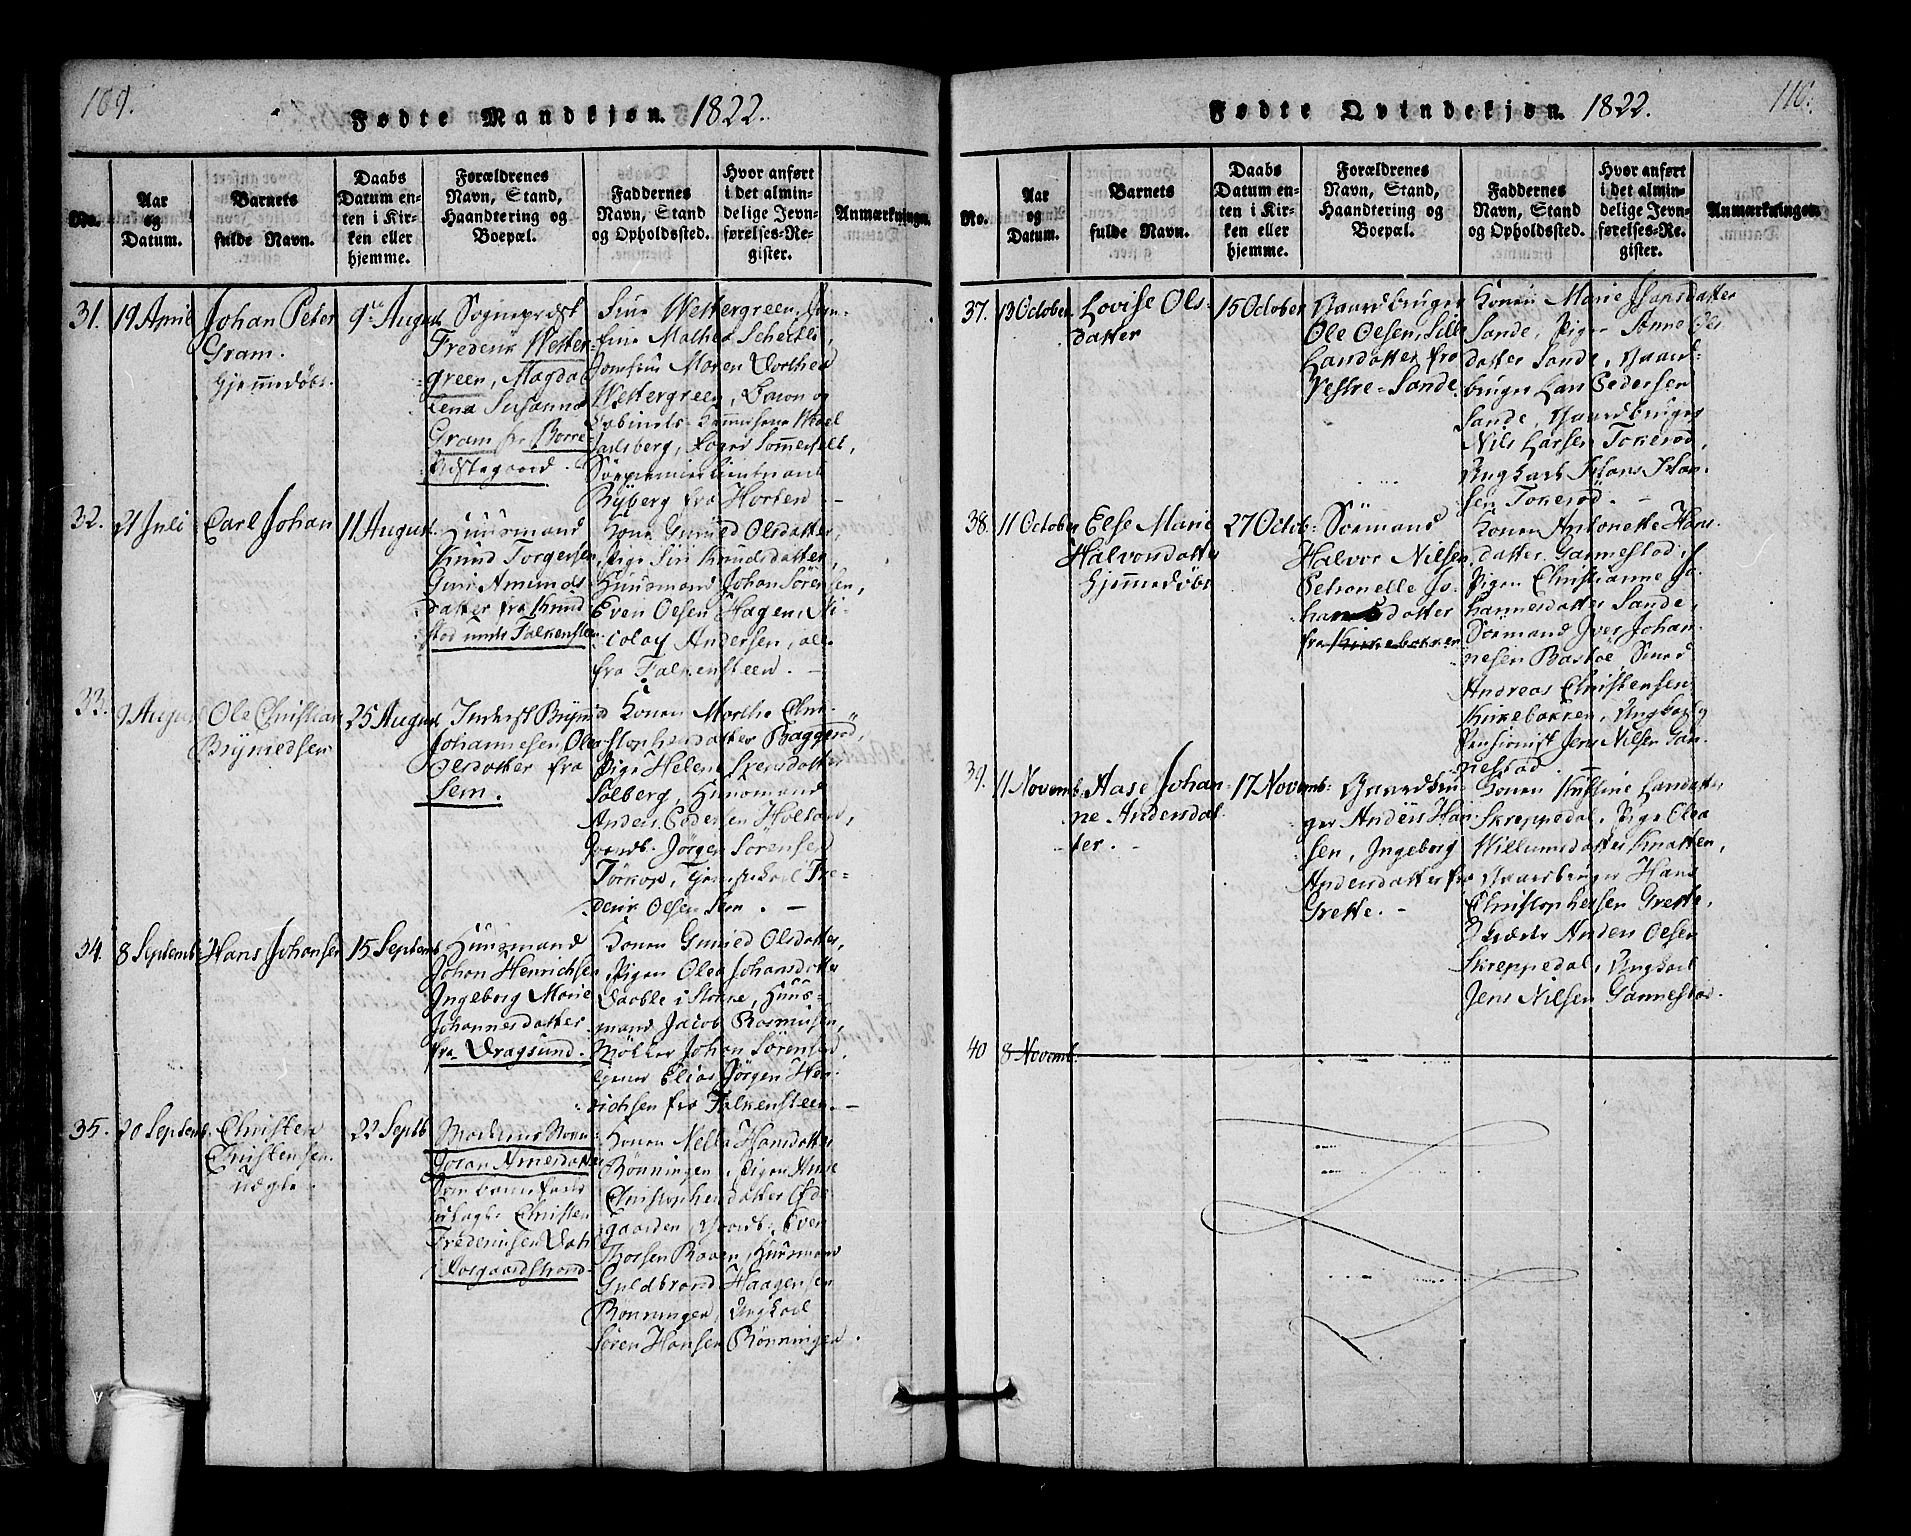 109.
Fødte Mandkjøn. 1822.
No.
Aar
og
Datum.
Barnets
fulde Navn.
Daabs
Datum en-
ten i Kir-
ken eller
hjemme.
Forældrenes
Navn, Stand,
Haandtering og
Boepæl.
Faddernes
Navn, Stand
og Opholdssted.
Hvor anført
i det almin-
delige Jevn-
førelses-Re-
gister.
Anmærkninger.
31.
19 April
Johan Peter
Gram.
Hjemmedøbt.
9de August
Sogneprest
Frederik Wetter-
green, Magda-
lena Susanna
Gram fra Borre
Præstegaard.
Frue Wettergreen, Jom-
frue Mathea Schertli,
Jomfrue Maren Dorthea
Wettergreen, Baron og
Cabinets-Kammerherre Wedel
Jarlsberg, Foged Sommerfelt,
Seconde Lieutenant
Ryberg fra Horten.
32.
21 Juli
Carl Johan
11 August
Huusmand
Knud Torgersen
Guri Amunds-
datter fra Knud-
stad under Falkensteen
Kone Gunild Olsdatter,
Pige Siri Knudsdatter,
Huusmand Johan Sörensen,
Even Olsen Hagen, Ni-
colay Andersen, alle
fra Falkensteen.
33.
9 August
Ole Christian
Brÿnildsen
25 August
Inderst Brÿnild
Johannesen, Olea
Olsdatter fra
Sem.
Konen Marthe Chri-
stophersdatter Baggerød,
Pige Helene Svensdatter
Solberg, Huusmand
Anders Pedersen Holtan,
Gaardb. Jörgen Sörensen
Törkop, Tjenestekarl Fre-
derik Olsen Sem.
34.
8 Septemb.
Hans Johansen
15 Septemb.
Huusmand
Johan Henrichsen
Ingeborg Marie
Johannesdatter
fra Dragsund.
Konen Gunild Olsdatter,
Pigen Olea Johansdatter
Daable i Stokke, Huus-
mand Jacob Rasmusen,
Möller Johan Sörensen
tjener Elias Jörgen Hen-
richsen fra Falkensteen.
35.
20 Septemb.
Christen
Christensen.
Uægte.
22 Septb.
Moderens Navn:
Joran Arnesdatter
som Barnefader
udlagt Christen
Frederiksen Dah
i Aasgaardstrand.
Konen Nella Hansdatter
Rönningen, Pigen Anne
Christophersdatter Öde-
gaarden, Gaardb. Even
Thorsen Raaen, Huusmand
Guldbrand Haagensen
Rönningen, Ungkarl
Sören Hansen Rönningen.
110.
Fødte Qvindekjøn. 1822.
No.
Aar
og
Datum.
Barnets
fulde Navn.
Daabs
Datum en-
ten i Kir-
ken eller
hjemme.
Forældrenes
Navn, Stand,
Haandtering og
Boepæl.
Faddernes
Navn, Stand
og Opholdssted.
Hvor anført
i det almin-
delige Jevn-
førelses-Re-
gister.
Anmærkninger.
37.
13 October.
Lovise Ols-
datter
15 October
Gaardbruger
Ole Olsen, Sille
Larsdatter fra
Vestre-Sande.
Konen Marie Hansdatter
Sande, Pigen Anne Ols-
datter Sande, Gaard-
bruger Lars Pedersen
Sande, Gaardbruger
Nils Larsen Tokerød,
Ungkarl Hans Han-
sen Tokeröd.
38.
11 October
Else Marie
Halvorsdatter
Hjemmedøbt
27 Octob:
Sömand
Halvor Nilsen
Petronelle Jo-
hannesdatter
fra Kirkebakken
Konen Antonette Hans-
datter Gannestad,
Pigen Christianne Jo-
hannesdatter Sande,
Sömand Iver Johan-
nesen Bastøe, Smed
Andreas Christensen
Kirkebakken, Ungkarl og
Pensionist Jens Nilsen Gan-
nestad.
39.
11 Novemb.
Aase Johan-
ne Andersdat-
ter.
17 Novemb:
Gaardbru-
ger Anders Han-
sen, Ingeborg
Andersdatter fra
Grette.
Konen Kirstine Larsdatter
Skreppedal, Pige Olea
Willumsdatter Knatten,
Gaardbruger Hans
Christophersen Grette,
Anders Olsen
Skreppedal, Ungkarl
Jens Nilsen Gannestad.
40
8 Novemb.